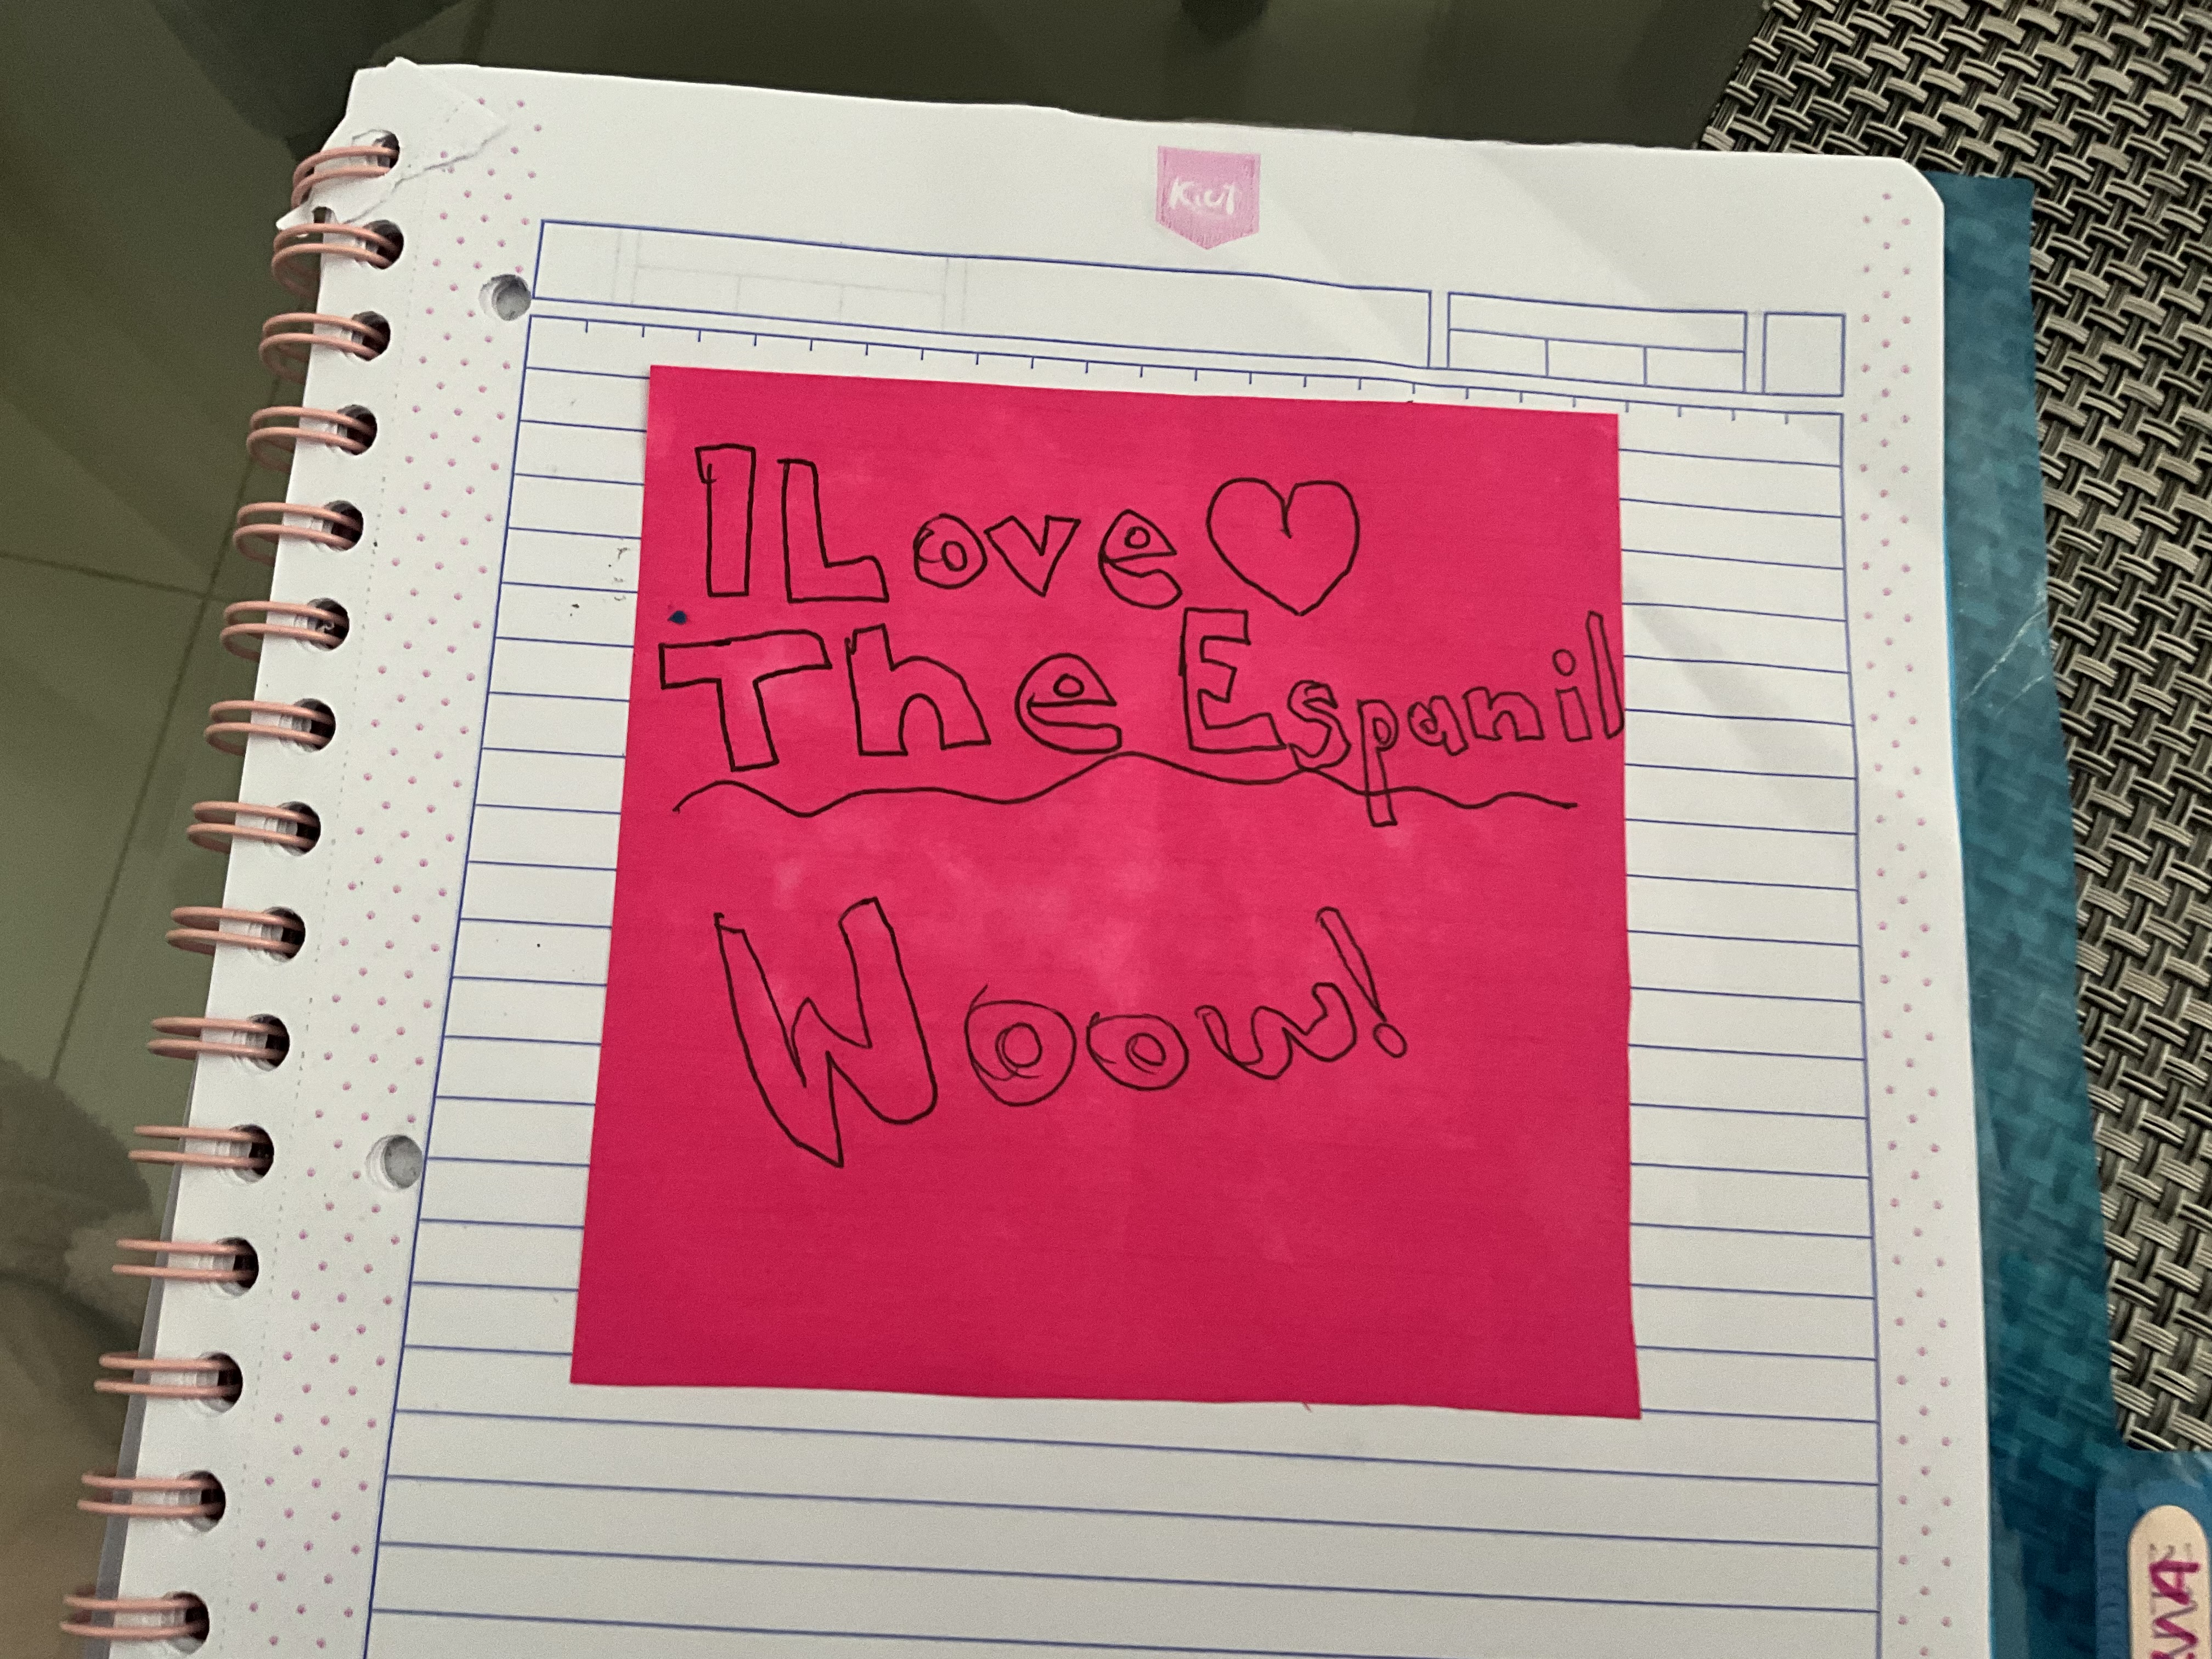 Kiut
I Love
The Espanil
Woow!